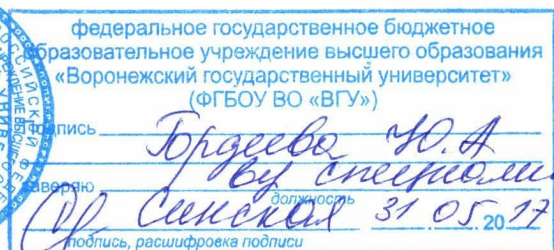 федеральное государственное бюджетное
образовательное учреждение высшего образования
«Воронежский государственный университет»
(ФГБОУ ВО «ВГУ»)
Подпись Гордеева Ю.А
заверяю вед специалист
должность
Синская 31 05 2017
подпись, расшифровка подписи